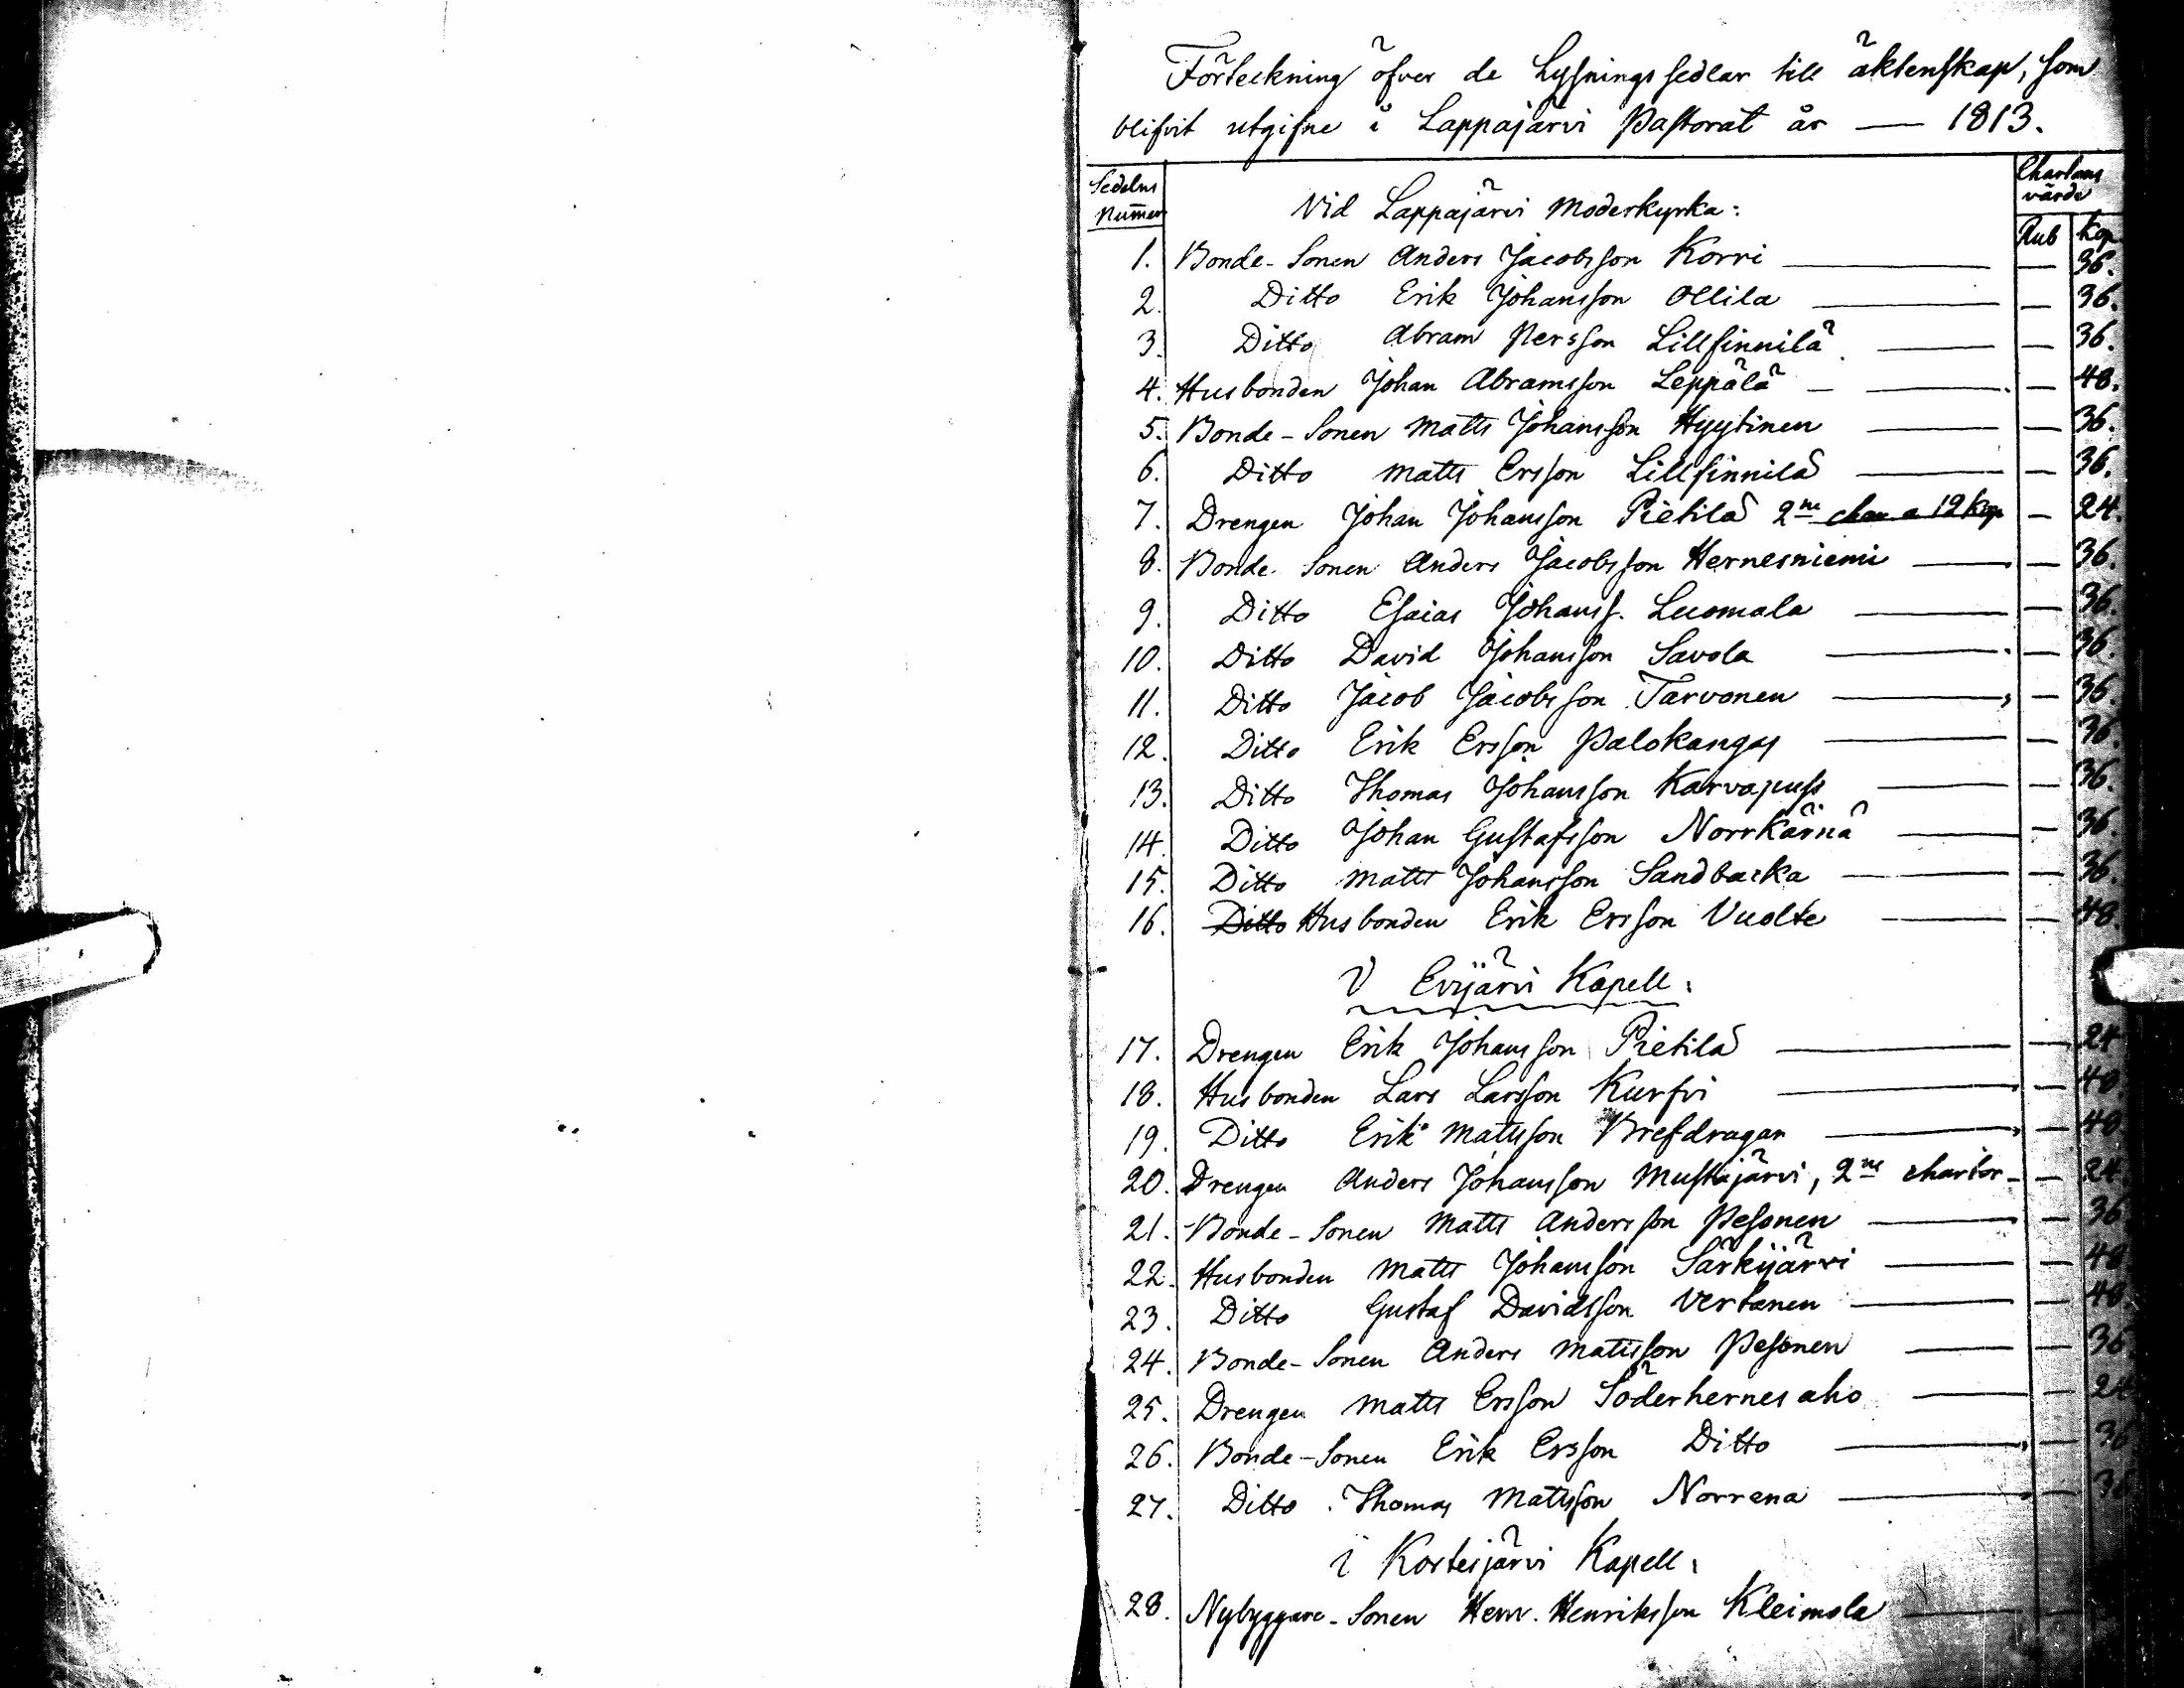 Förteckning öfver de Lysningssedlar till äktenskap, som
blifvit utgifne i Lappajärvi Pastorat år — 1813.
Sedelns Nummer Vid Lappajärvi Moderkyrka: Chartans värde Rub Kop
1. Bonde-Sonen Anders Jacobsson Korri — — 36.
2. Ditto Erik Johansson Ollila — — 36.
3. Ditto Abram Persson Lillfinnilä — — 36.
4. Husbonden Johan Abramsson Leppälä — — 48.
5. Bonde-Sonen Matts Johansson Hyytinen — — 36.
6. Ditto Matts Ersson Lillfinnilä — — 36.
7. Drengen Johan Johansson Pietilä 2ne char a 12 kop — 24.
8. Bonde-Sonen Anders Jacobsson Hernesniemi — — 36.
9. Ditto Esaias Johanss. Luomala — — 36.
10. Ditto David Johansson Savola — — 36.
11. Ditto Jacob Jacobsson Tarvonen — — 36.
12. Ditto Erik Ersson Palokangas — — 36.
13. Ditto Thomas Johansson Karvapuss — — 36.
14. Ditto Johan Gustafsson Norrkärnä — — 36.
15. Ditto Matts Johansson Sandbacka — — 36.
16. Ditto Husbonden Erik Ersson Vuolte — — 48.
I Evijärvi Kapell:
17. Drengen Erik Johansson Pietilä — — 24
18. Husbonden Lars Larsson Kurfvi — — 48.
19. Ditto Erik Mattsson Brefdragar — — 48
20. Drengen Anders Johansson Mustajärvi, 2ne chartor — — 24.
21. Bonde-Sonen Matts Andersson Pesonen — — 36
22. Husbonden Matts Johansson Särkijärvi — — 48
23. Ditto Gustaf Davidsson Vertanen — — 48.
24. Bonde-Sonen Anders Mattsson Pesonen — — 36.
25. Drengen Matts Ersson Söderhernesaho — — 24
26. Bonde-Sonen Erik Ersson Ditto — — 36
27. Ditto Thomas Mattsson Norrena — — 36
i Kortesjärvi Kapell:
28. Nybyggare-Sonen Henr. Henriksson Kleimola —